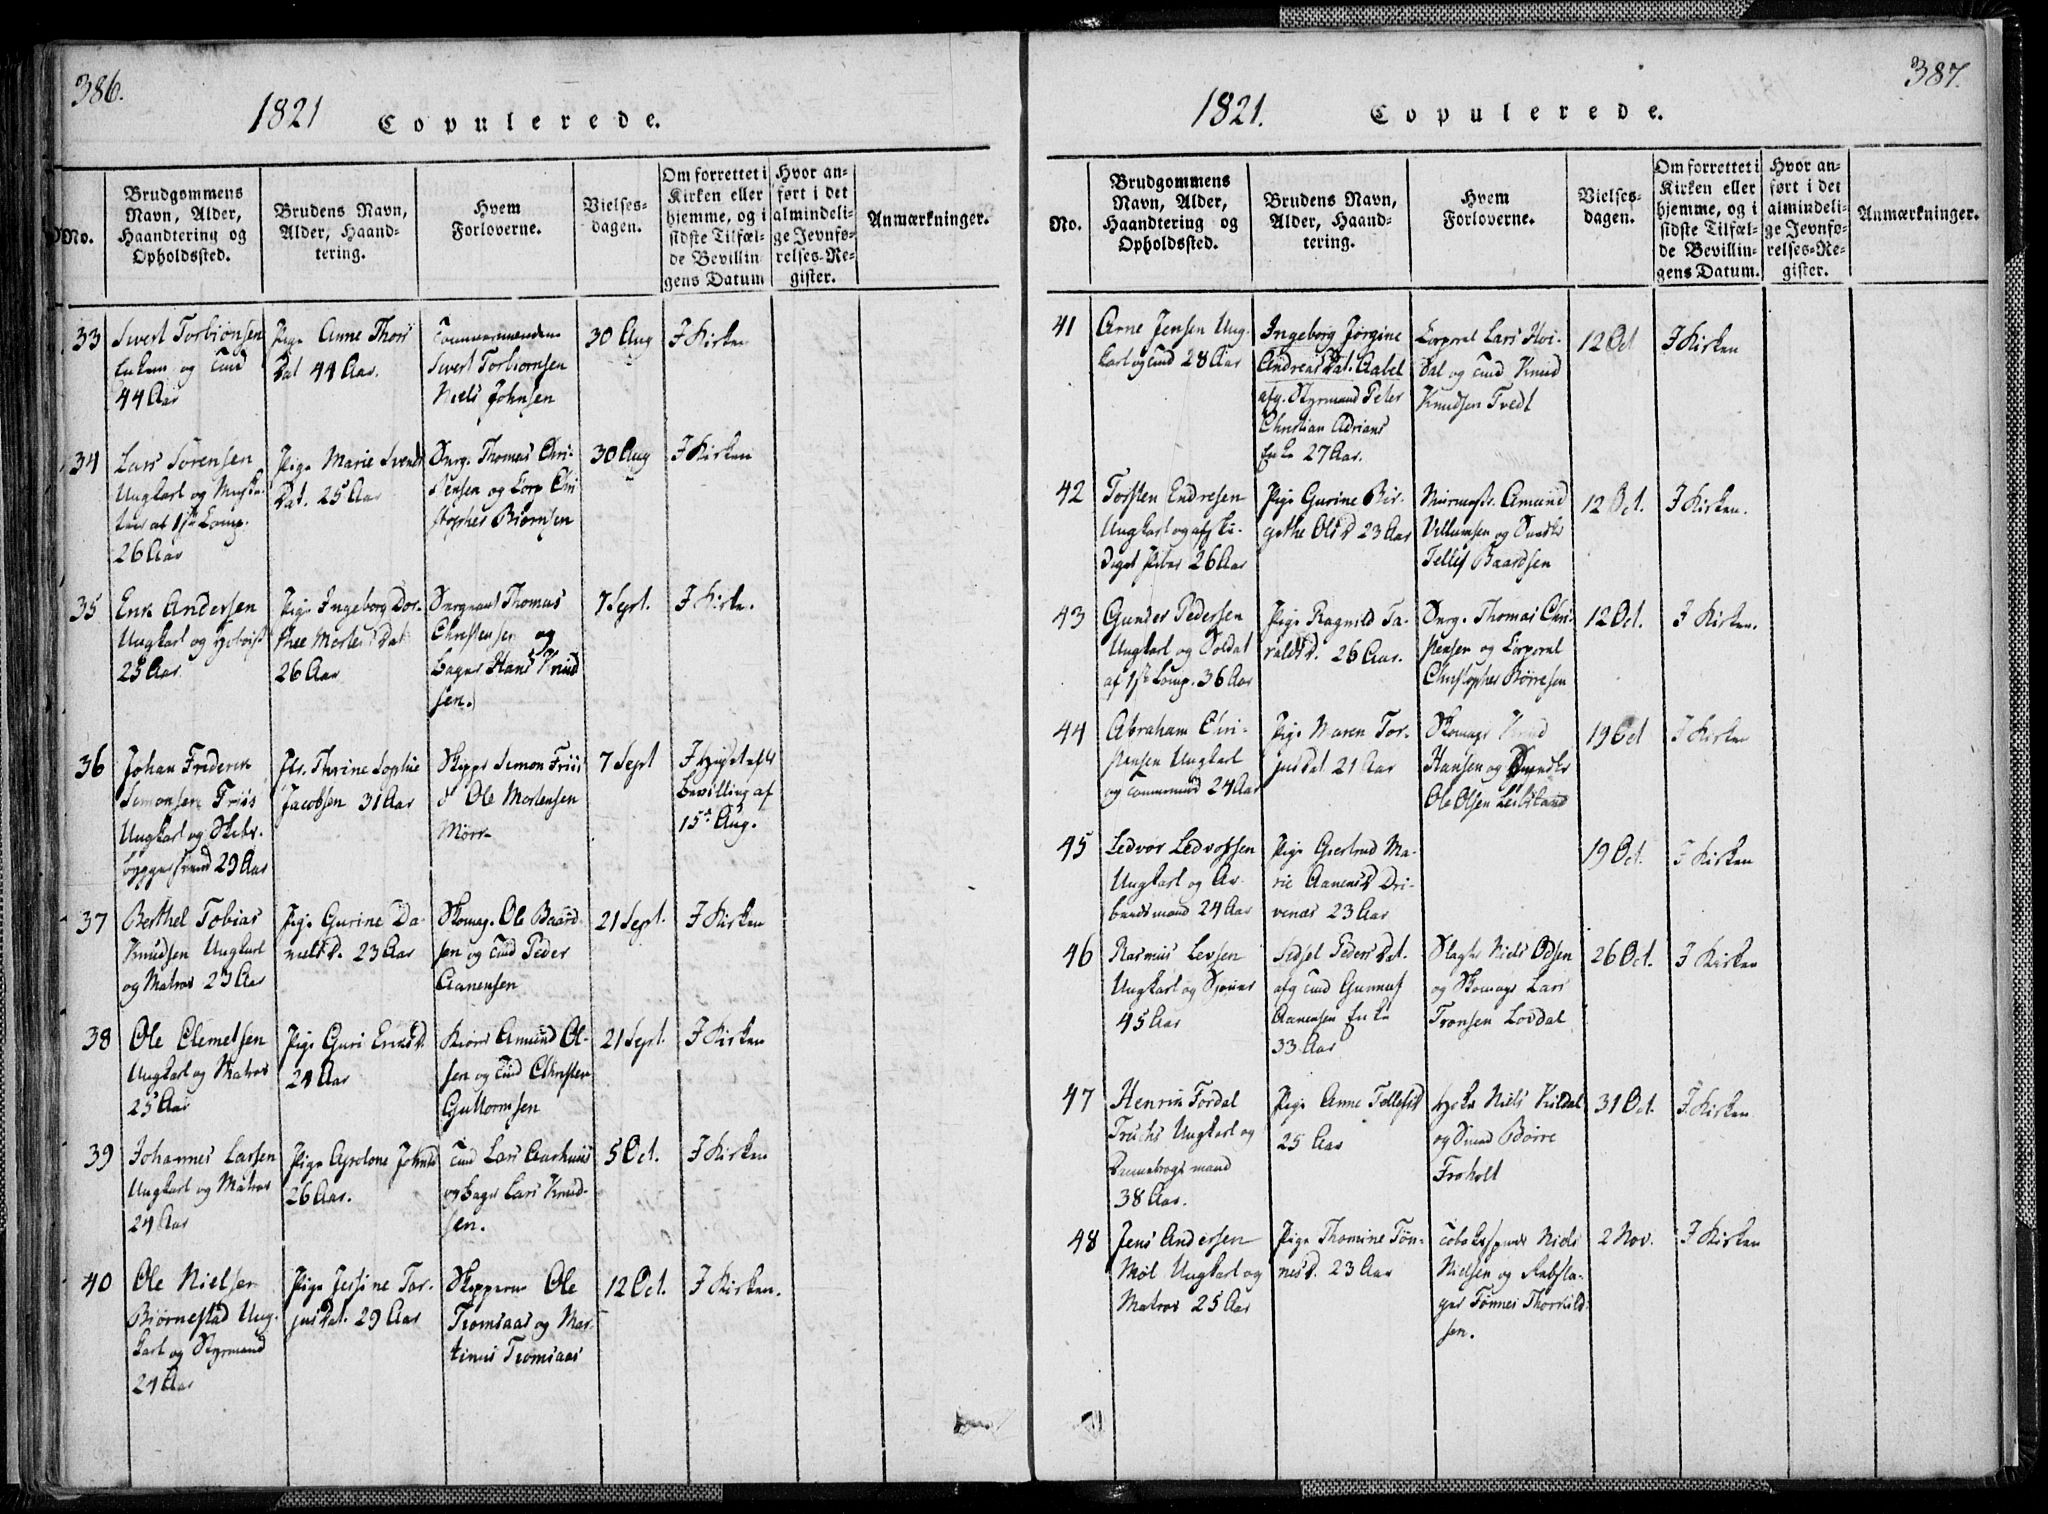 386.
1821 Copulerede.
No.
Brudgommens Navn, Alder, Haandtering og Opholdssted.
Brudens Navn, Alder, Haandtering.
Hvem Forloverne.
Vielsesdagen.
Om forrettet i Kirken eller hjemme, og i sidste Tilfælde Bevillingens Datum
Hvor anført i det almindelige Jevnførelses-Register.
Anmærkninger.
33
Sivert Torbiønsen
Enkem og Tmd
44 Aar
Pige Anne Thors
Dat 44 Aar.
Tømmermændene
Sivert Torbiornsen
Niels Johnsen
30 Aug
I Kirken
34
Lars Sørensen
Ungkarl og Muske-
teer af 1ste Comp.
26 Aar
Pige Marie Svends
Dat. 25 Aar
Serg. Thomas Chri-
stensen og Corp Chri
stopher Biørnsen
30 Aug
I Kirken
35
Erik Andersen
Ungkarl og
25 Aar
Pige Ingeborg Dor-
thee Mortens Dat
26 Aar
Sergeant Thomas
Christensen og
Bager Hans Knud
sen.
7 Sept.
I Kirke.
36
Johan Frederik
Simonsen Friis
Ungkarl og Skibs-
byggersvend 29 Aar
Jfr. Thrine Sophie
Jacobsen 31 Aar
Skippr Simon Friis
& Ole Mortensen
Mörk
7 Sept
I Huset eft
bevilling af
15de Aug.
37
Berthel Tobias
Knudsen Ungkarl
og Matros 23 Aar
Pige Gurine Da-
nielsD. 23 Aar
Skomag. Ole Baard-
sen og Tmd Peder
Aanensen
21 Sept.
I Kirken
38
Ole Clemetsen
Ungkarl og Matros
25 Aar
Pige Guri EriksD.
24 Aar
Amund Ol-
sen og Tmd Christen
Guttormsen
21 Sept.
I Kirken
39
Johannes Larsen
Ungkarl og Matros
24 Aar
Pige Apolone JohnsD
26 Aar.
Tmd Lars Aarhuus
og Bager Lars Knud-
sen.
5 Oct.
I Kirken
40
Ole Nielsen
Biørnestad Ung-
karl og Styrmand
24 Aar
Pige Jessine Tor-
jusDat. 29 Aar
Skipperne Ole
Tromsaas og Mar-
tinus Tromsaas
12 Oct.
I Kirken.
387.
1821. Copulerede.
No.
Brudgommens Navn, Alder, Haandtering og Opholdssted.
Brudens Navn, Alder, Haandtering.
Hvem Forloverne.
Vielsesdagen.
Om forrettet i Kirken eller hjemme, og i sidste Tilfælde Bevillingens Datum.
Hvor anført i det almindelige Jevnførelses-Register.
Anmærkninger.
41
Arne Jensen Ung-
karl og Tmd 28 Aar
Ingeborg Jørgine
AndreasDat. Aabel
afg. Styrmand Peter
Christian Adrians
Enke 27 Aar.
Corporal Lars Hoi-
dal og Tmd Knud
Knudsen Tvedt
12 Oct
I Kirken
42
Torsten Endresen
Ungkarl og afske-
diget Piber 26 Aar
Pige Gurine Bir-
gethe OlsD 23 Aar
Muurmestr. Amund
Villumsen og Snedkr
Tellef Baardsen
12 Oct.
I Kirken.
43
Gunder Pedersen
Ungkarl og Soldat
af 1ste Comp. 36 Aar
Pige Ragnild Ta-
raldsD. 26 Aar.
Serg. Thomas Chri-
stensen og Corporal
Christopher Børresen
12 Oct.
I Kirken.
44
Abraham Chri-
stensen Ungkarl
og Tømmermd 24 Aar
Pige Maren Tor-
jusDat. 21 Aar
Skomagr Knud
Hansen og Snedkr
Ole Olsen Leibsland
19 Oct
I Kirken
45
Ledvor Ledvorsen
Ungkarl og Ar-
beidsmand 24 Aar
Pige Giertrud Ma-
rie AanensD Dri-
venæs 23 Aar
19 Oct.
I Kirken
46
Rasmus Levsen
Ungkarl og
45 Aar
Sidsel PedersDat.
afg Tmd Gunnuf
Aanensen Enke
33 Aar
Slagtr Niels Odsen
og Skomagr Lars
Tronsen Lovdal
26 Oct.
I Kirken
47
Henrik Fordal
Truchs Ungkarl og
Dannebrogsmand
38 Aar.
Pige Anne TellefsD
25 Aar
Niels Kildal
og Smed Børre
Froholt
31 Oct.
I Kirken
48
Jens Andersen
Möl Ungkarl og
Matros 25 Aar
Pige Thomine Tøn-
nesD. 23 Aar
Tobaksspinder Niels
Nielsen og Rebsla-
ger Tønnes Thorkild-
sen.
2 Nov.
I Kirken